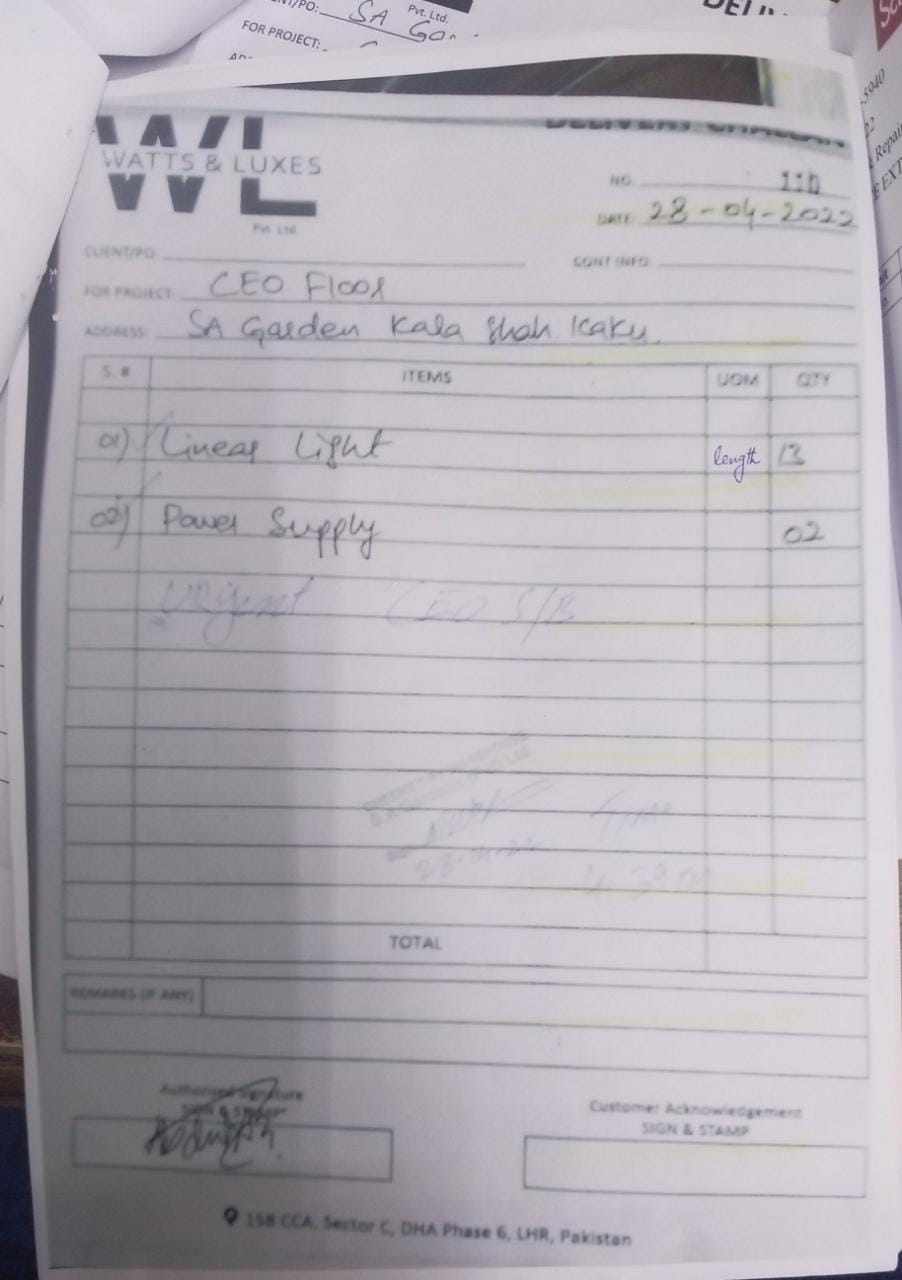 NT/PO: SA
Pvt. Ltd.
FOR PROJECT:
5940
Repair
WL
WATTS & LUXES
Pvt. Ltd
DELIVERY CHALLAN
NO.
DATE: 28-04-2022
CLIENT/PO:
CONT INFO:
FOR PROJECT: CEO Floor
ADDRESS: SA Garden Kala Shah Kaku.
S. # ITEMS UOM QTY
01) Linear Light length 13
02) Power Supply 02
Urgent CEO S/B
28-04-22
TOTAL
REMARKS (IF ANY)
Authorized Signature
SIGN & STAMP
Customer Acknowledgement
SIGN & STAMP
158 CCA, Sector C, DHA Phase 6, LHR, Pakistan